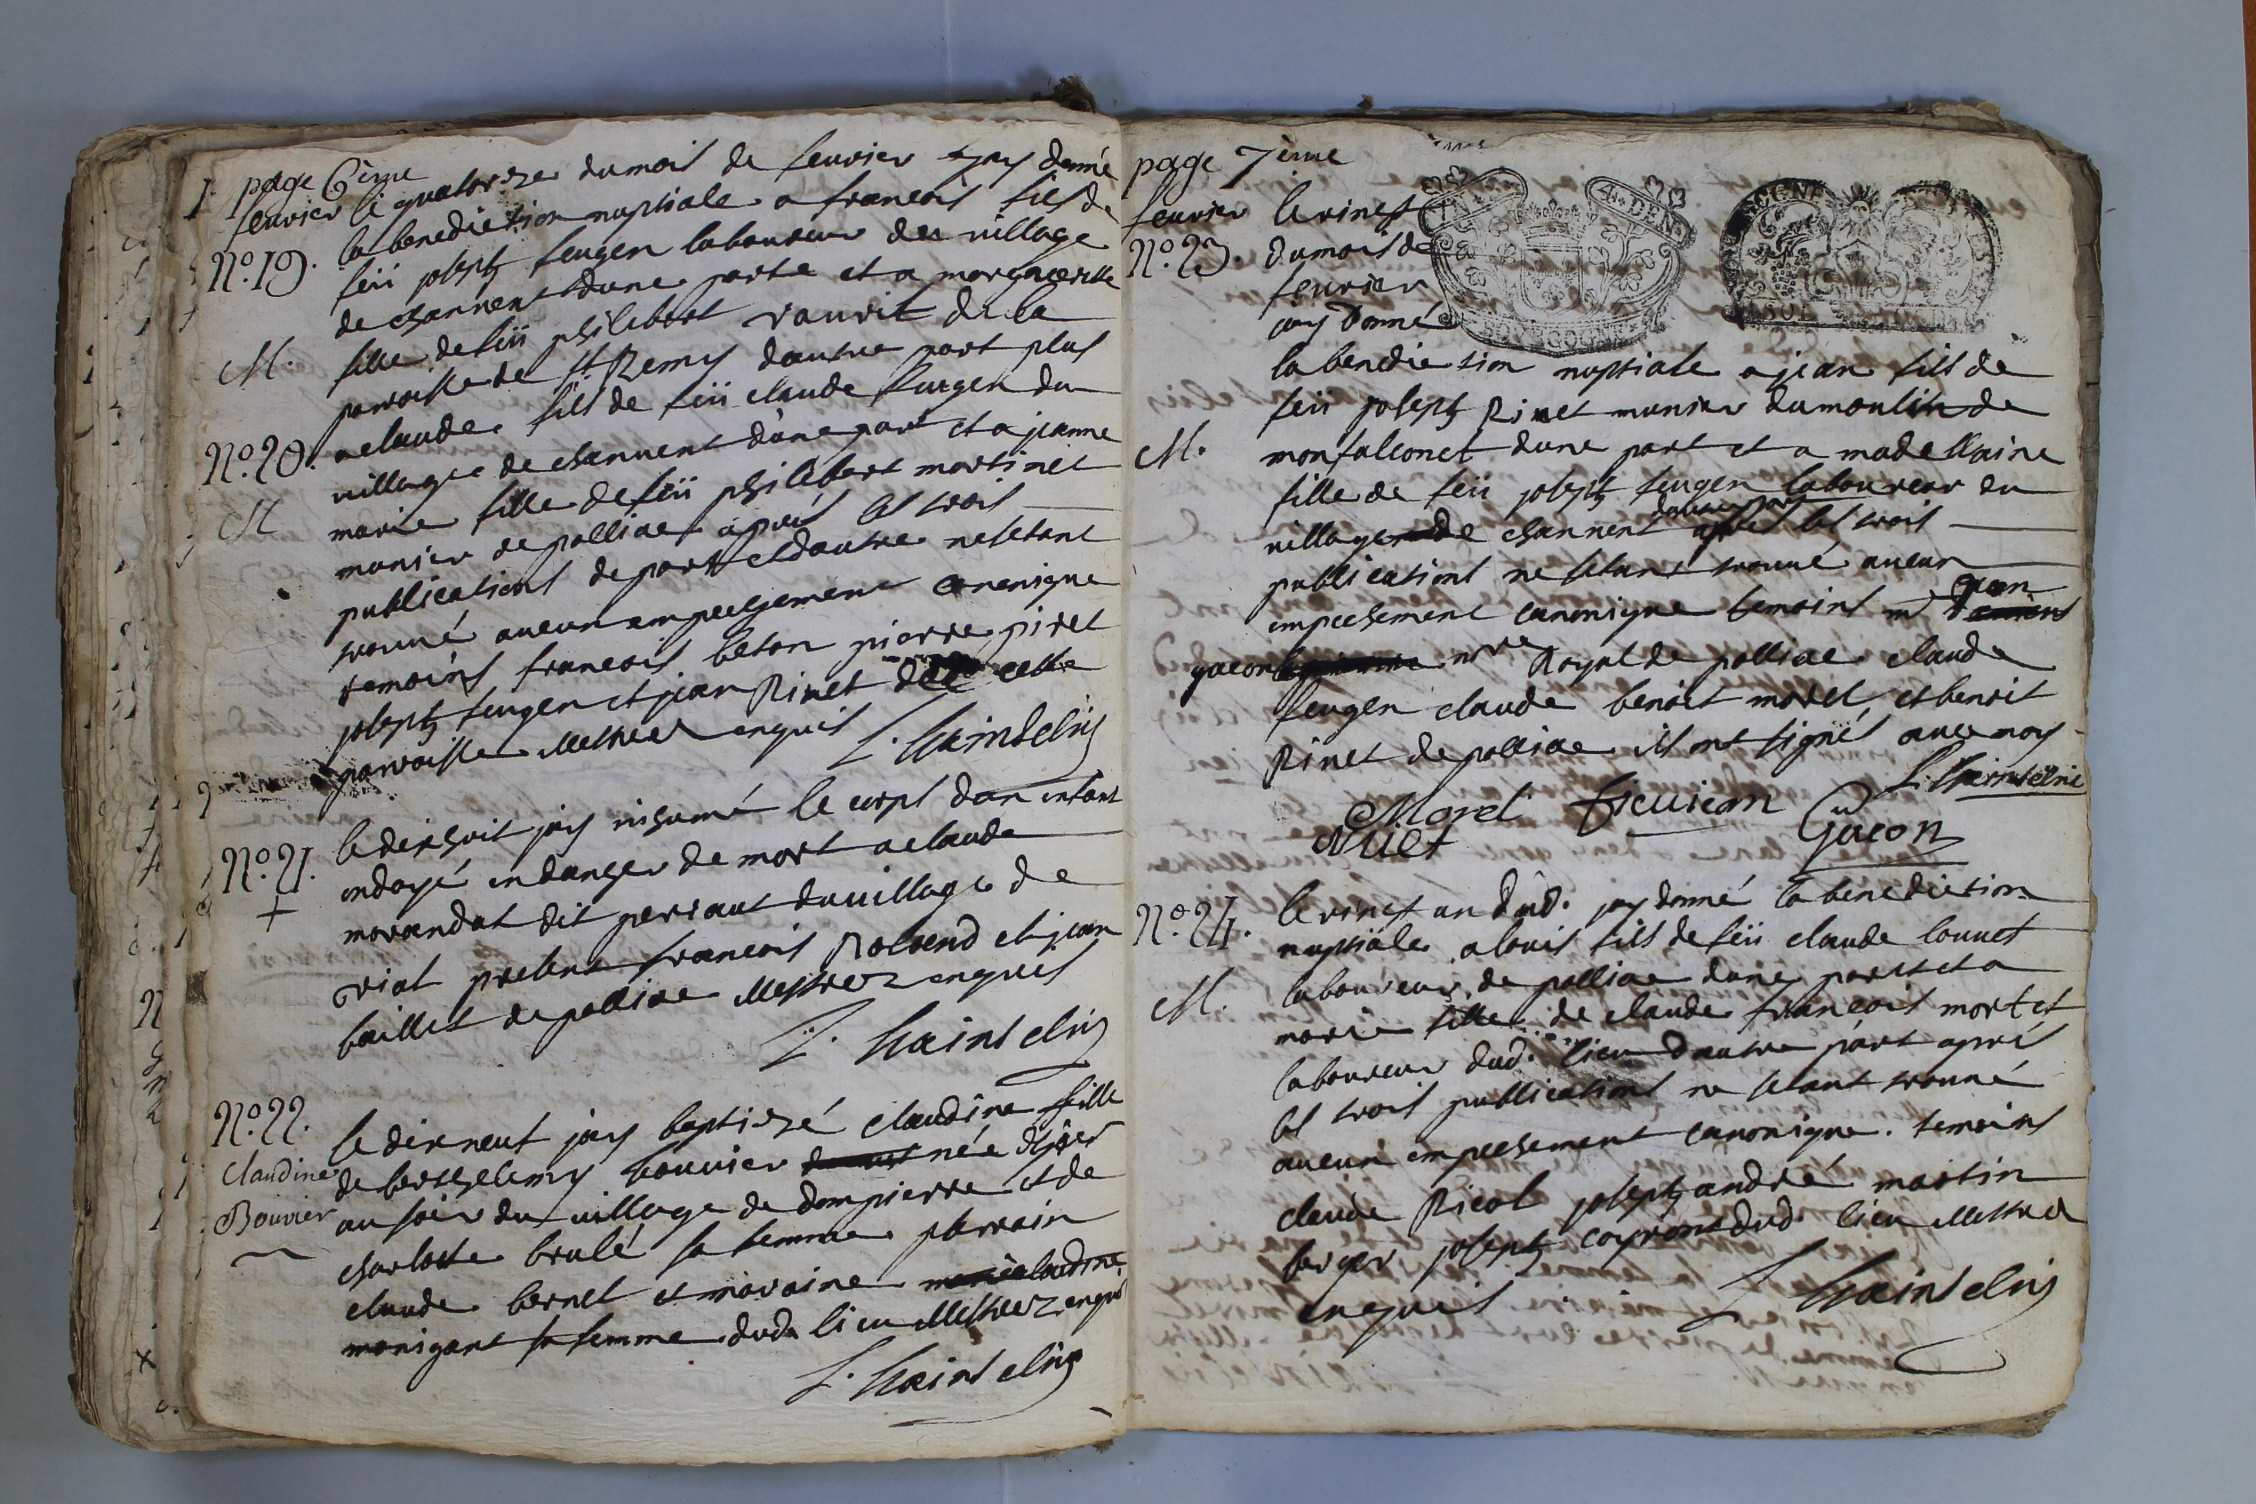 page 6ème
feurier le quatorze du mois de feurier jay donné
N°. 19. la benediction nuptiale a francois fils de
feü joseph feugen laboureur du village
de channent dune parte et a margueritte
M. fille de feü philebert rauvit de la
paroisse de st Remy dautre part plus
N°. 20. a claude fils de feü claude furgen du
village de channent dune part et a jeanne
M marie fille de feü philebert martinet
munier de polliac apres les trois
publications de part et dautre ne setant
trouué aucun empeschement canonique
temoins francois beton pierre piret
joseph feugen et jean Rinet de cette
paroisse illettrez enquis
N°. 21. le dixhuit jay inhumé le corps dun enfant
+ ondoyé en danger de mort a claude
morandat dit perraut du village de
vial presens francois Roland et jean
baillet de polliac illettrez enquis
N°. 22. le dixneuf jay baptizé claudine fille
Claudine de berthelemy bouvier née dhier
Bouvier au soir du village de dompierre et de
charlotte brulé sa femme parrain
claude bernet et maraine claudine
monigant sa femme dudt lieu illettrez enquis
page 7ème
feurier le vingt
N°. 23. du mois de
feurier
jay donné
la benediction nuptiale a jean fils de
feü joseph Rinet munier du moulin de
M. monfalconet dune part et a madellaine
fille de feü joseph feugen laboureur du
village de channent dautre part apres les trois
publications ne setant trouué aucun
empechement canonique temoins mr jean
gacon nore Royal de polliac claude
feugen claude benoit morel et benoit
Rinet de polliac ils ont signés avec moy
Morel
Gacon
N°. 24. le vingt un dud. jay donné la benediction
nuptiale a louis fils de feü claude louuet
laboureur de polliac dune part et a
M. marie fille de claude francois mortet
laboureur dud. lieu dautre part apres
les trois publications ne setant trouué
aucun empechement canonique. temoins
claude Picol joseph andré martin
berger joseph coyront dud. lieu illettrez
enquis